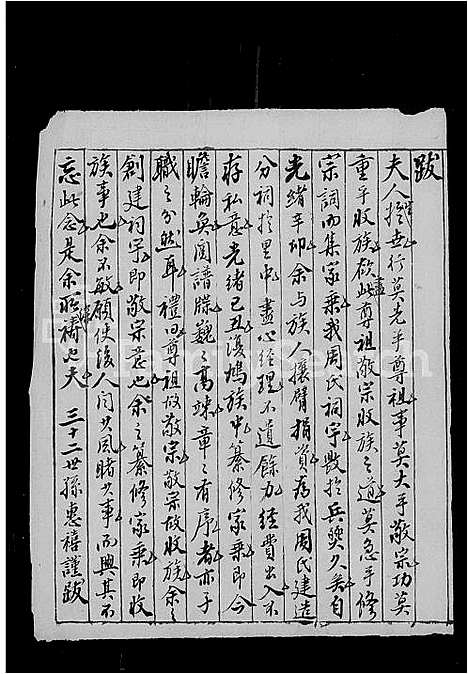 跋
夫人擔世行莫先乎尊祖事莫大乎敬宗功莫
重乎收族欲盡此尊祖敬宗收族之道莫急乎修
宗詞而集家乘我周氏祠宇毀於兵燹久矣自
光緒辛卯余与族人攘臂捐資為我周氏建造
分祠於里中盡心經理不遺餘力經費出入不
存私意光緒己丑復鳩族中纂修家乘即今
瞻輪奐閱譜牒巍巍高竦章章有序者亦子
職之分然耳禮曰尊祖故敬宗敬宗故收族余之
創建祠宇即敬宗意也余之纂修家乘即收
族事也余不敏願使後人聞其風睹其事而興其不
忘此念是余所禱也夫 三十二世孫惠禧謹跋